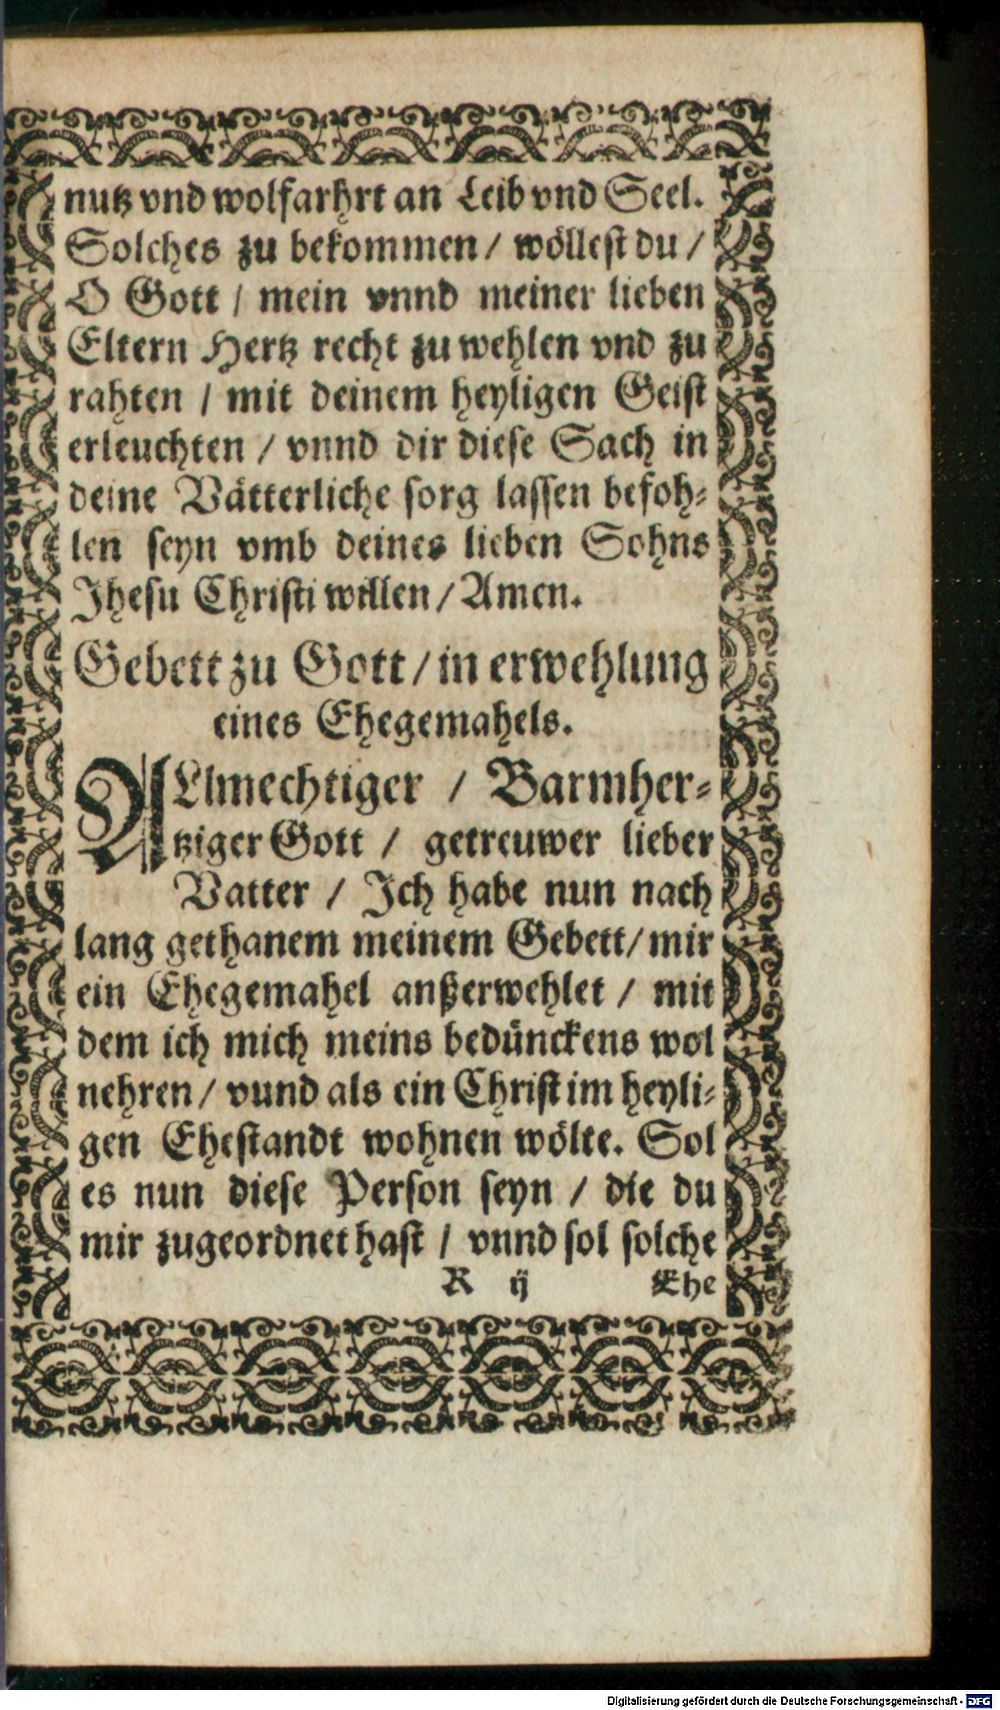 nutz vnd wolfarhrt an Leib vnd Seel.
Solches zu bekommen / wöllest du /
O Gott / mein vnnd meiner lieben
Eltern Hertz recht zu wehlen vnd zu
rahten / mit deinem heyligen Geist
erleuchten / vnnd dir diese Sach in
deine Vätterliche sorg lassen befoh-
len seyn vmb deines lieben Sohns
Jhesu Christi willen / Amen.
Gebett zu Gott / in erwehlung
eines Ehegemahels.
ALlmechtiger / Barmher-
tziger Gott / getreuwer lieber
Vatter / Ich habe nun nach
lang gethanem meinem Gebett / mir
ein Ehegemahel anßerwehlet / mit
dem ich mich meins bedünckens wol
nehren / vund als ein Christ im heyli-
gen Ehestandt wohnen wölte. Sol
es nun diese Person seyn / die du
mir zugeordnet hast / vnnd sol solche
R ij Ehe
Digitalisierung gefördert durch die Deutsche Forschungsgemeinschaft - DFG